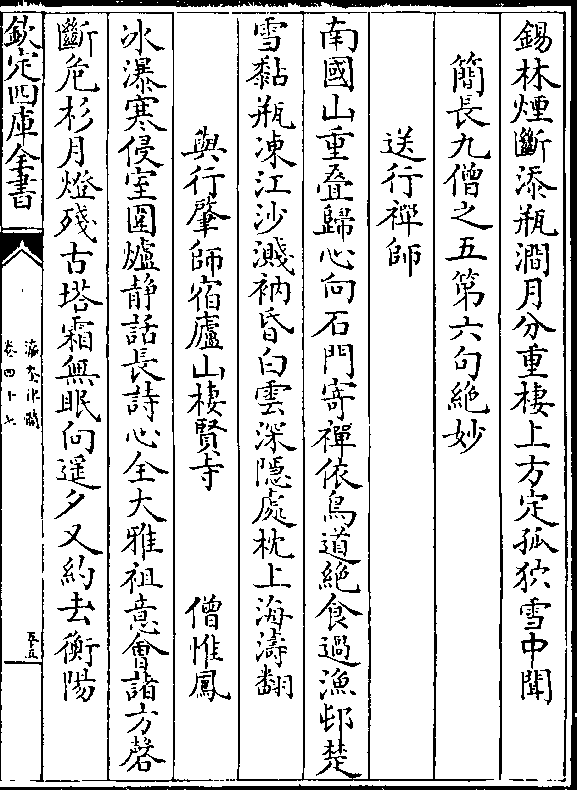 錫林煙斷添瓶澗月分重棲上方定孤狖雪中聞
簡長九僧之五第六句絶妙
送行禪師
南國山重叠歸心向石門寄禪依鳥道絶食過漁邨楚
雪黏瓶凍江沙濺衲昏白雲深隱處枕上海濤翻
與行肇師宿廬山棲賢寺 僧惟鳳
冰瀑寒侵室圍爐静話長詩心全大雅祖意會諸方磬
斷危杉月燈殘古塔霜無眠向遥夕又約去衡陽
欽定四庫全書
瀛奎律髓
卷四十七